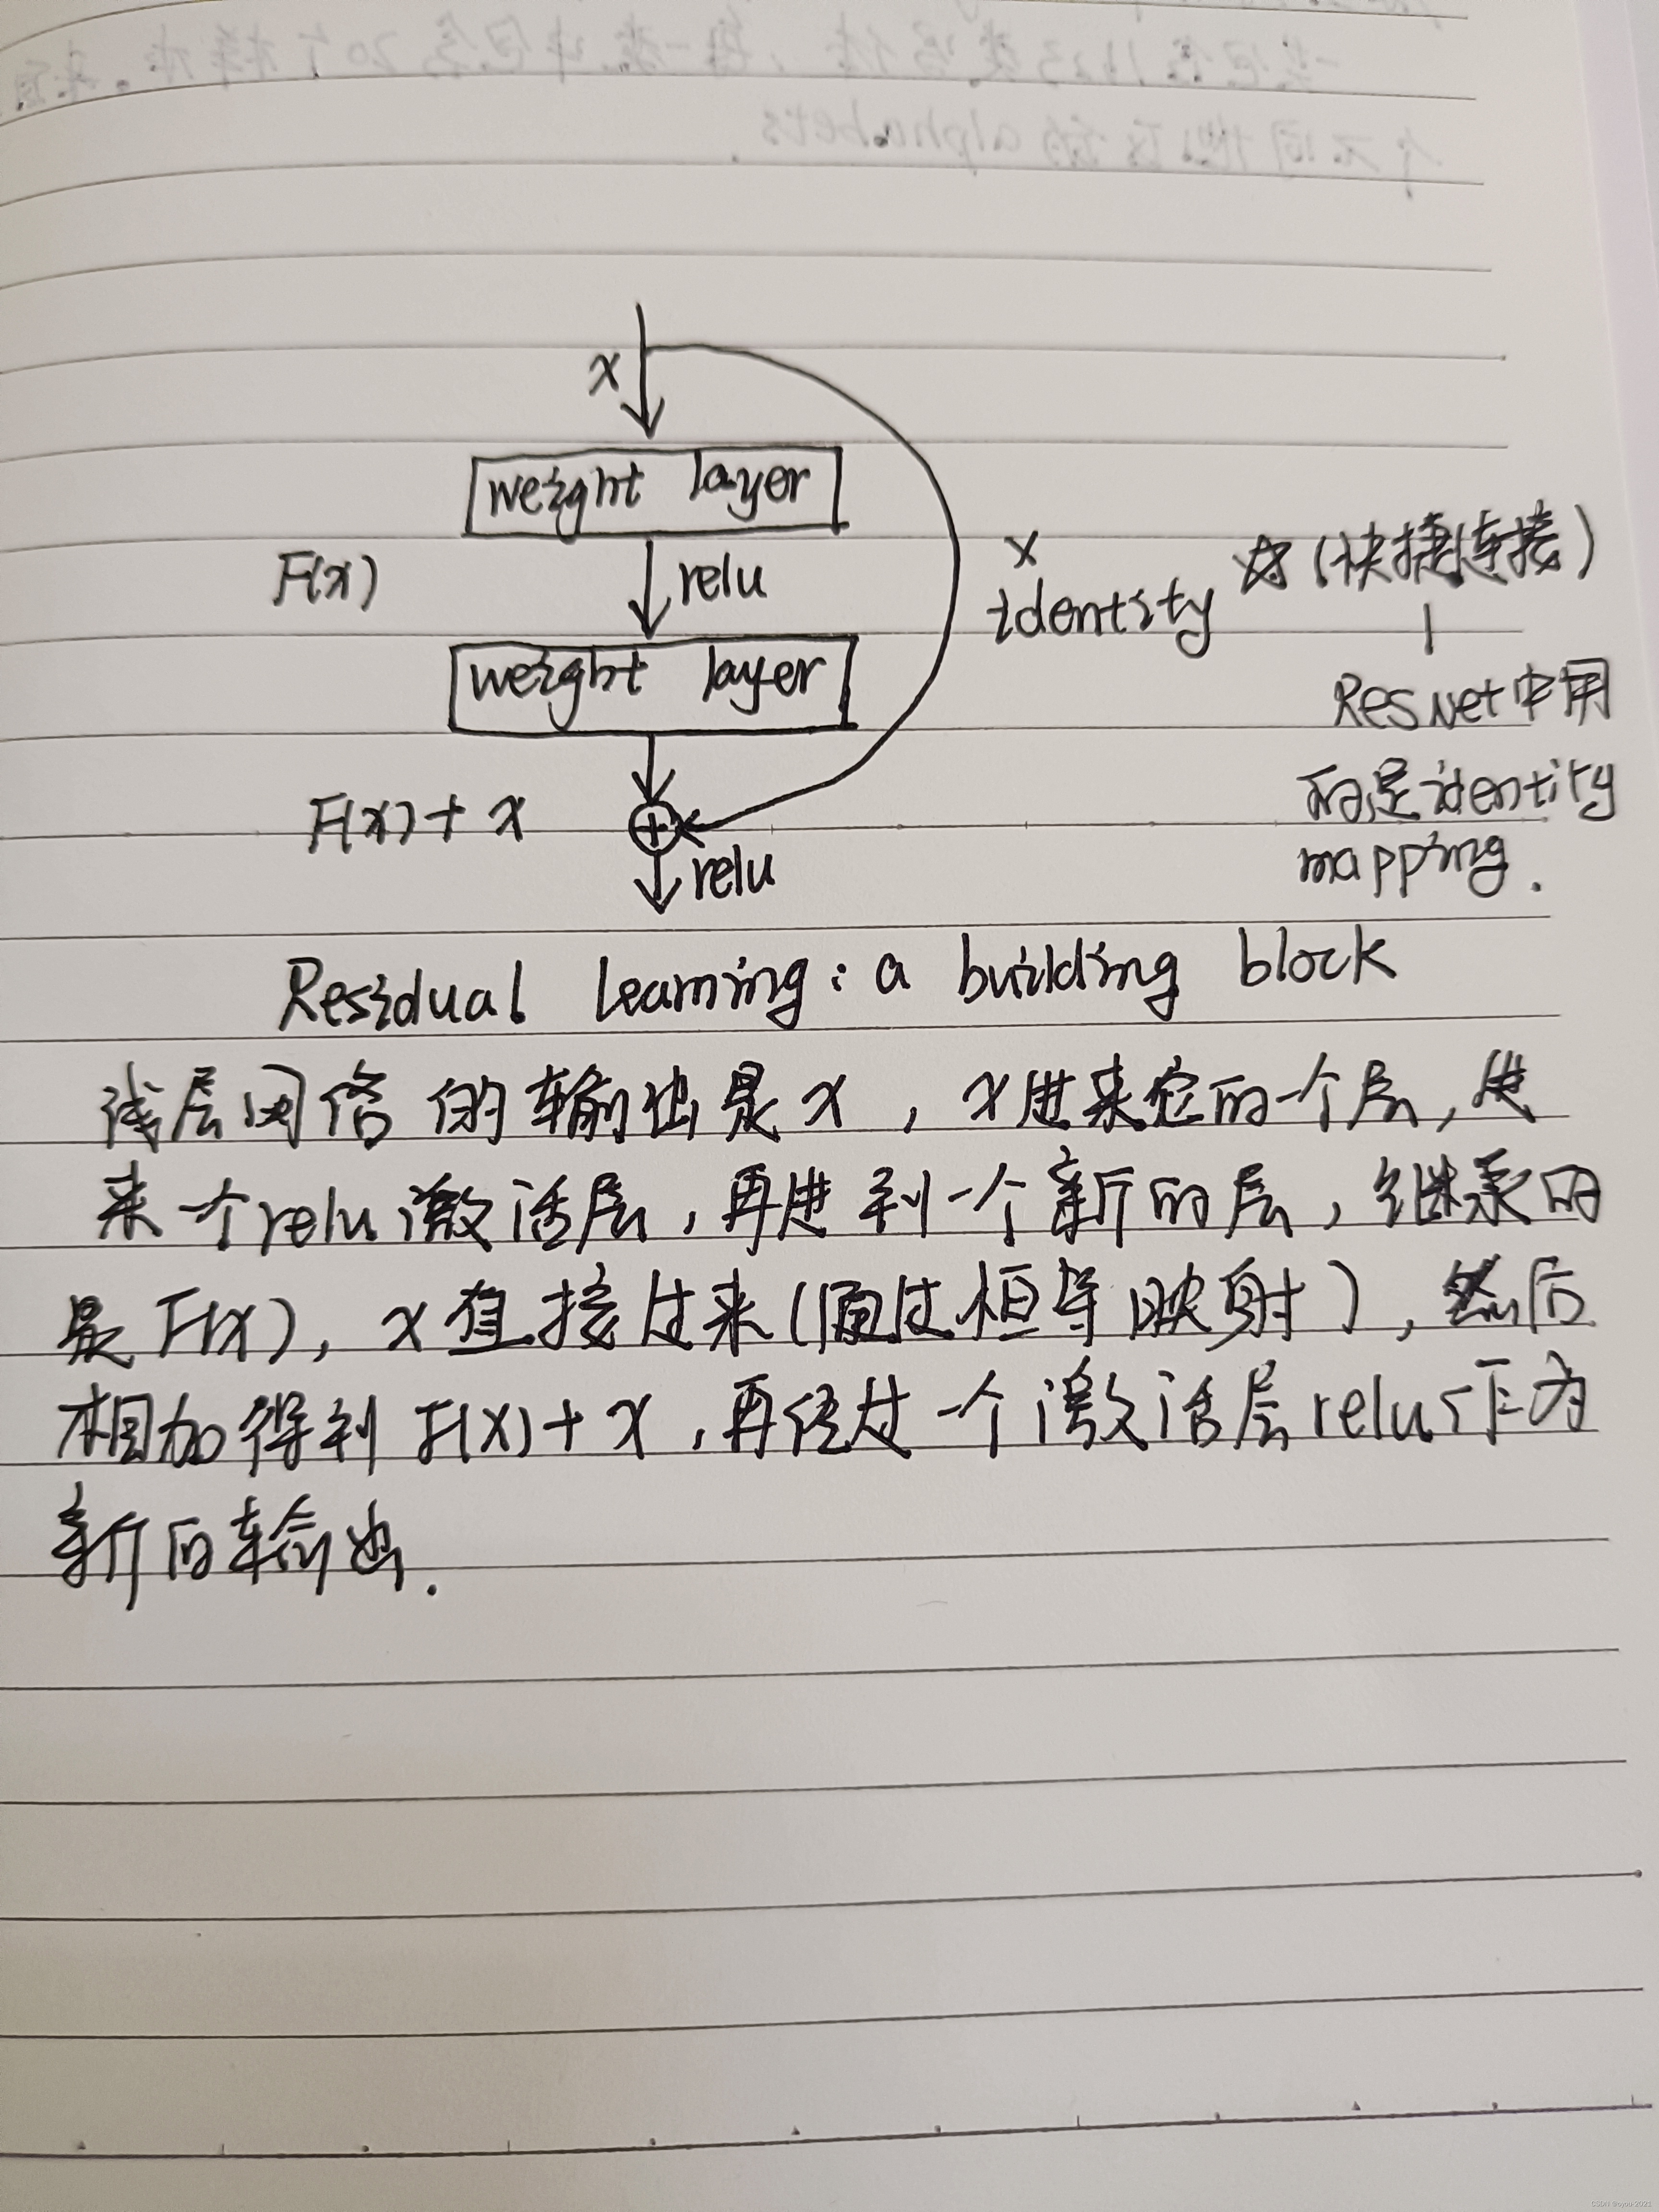 x
weight layer
F(x)
relu
x
identity ☆(快捷连接)
weight layer
ResNet中用
的是identity
mapping.
F(x)+x
relu
Residual learning: a building block
浅层网络的输出是x,x进来它的一个层,进
来一个relu激活层,再进到一个新的层,继承的
是F(x),x直接过来(通过恒等映射),然后
相加得到F(x)+x,再经过一个激活层relu作为
新的输出.